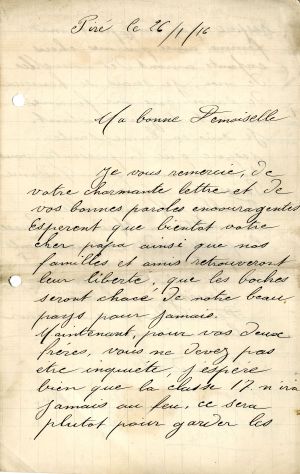 Piré le 26/1/16
Ma bonne Demoiselle
Je vous remercie, de
votre charmante lettre et de
vos bonnes paroles encourageantes
Esperent que bientot votre
cher papa ainsi que nos
familles et amis retrouveront
leur liberté, que les boches
seront chacé de notre beau
pays pour jamais.
Maintenant, pour vos deux
freres, vous ne devez pas
etre inquiete, j'espere
bien que la classe 17 n'ira
jamais au feu, ce sera
plutot pour garder les